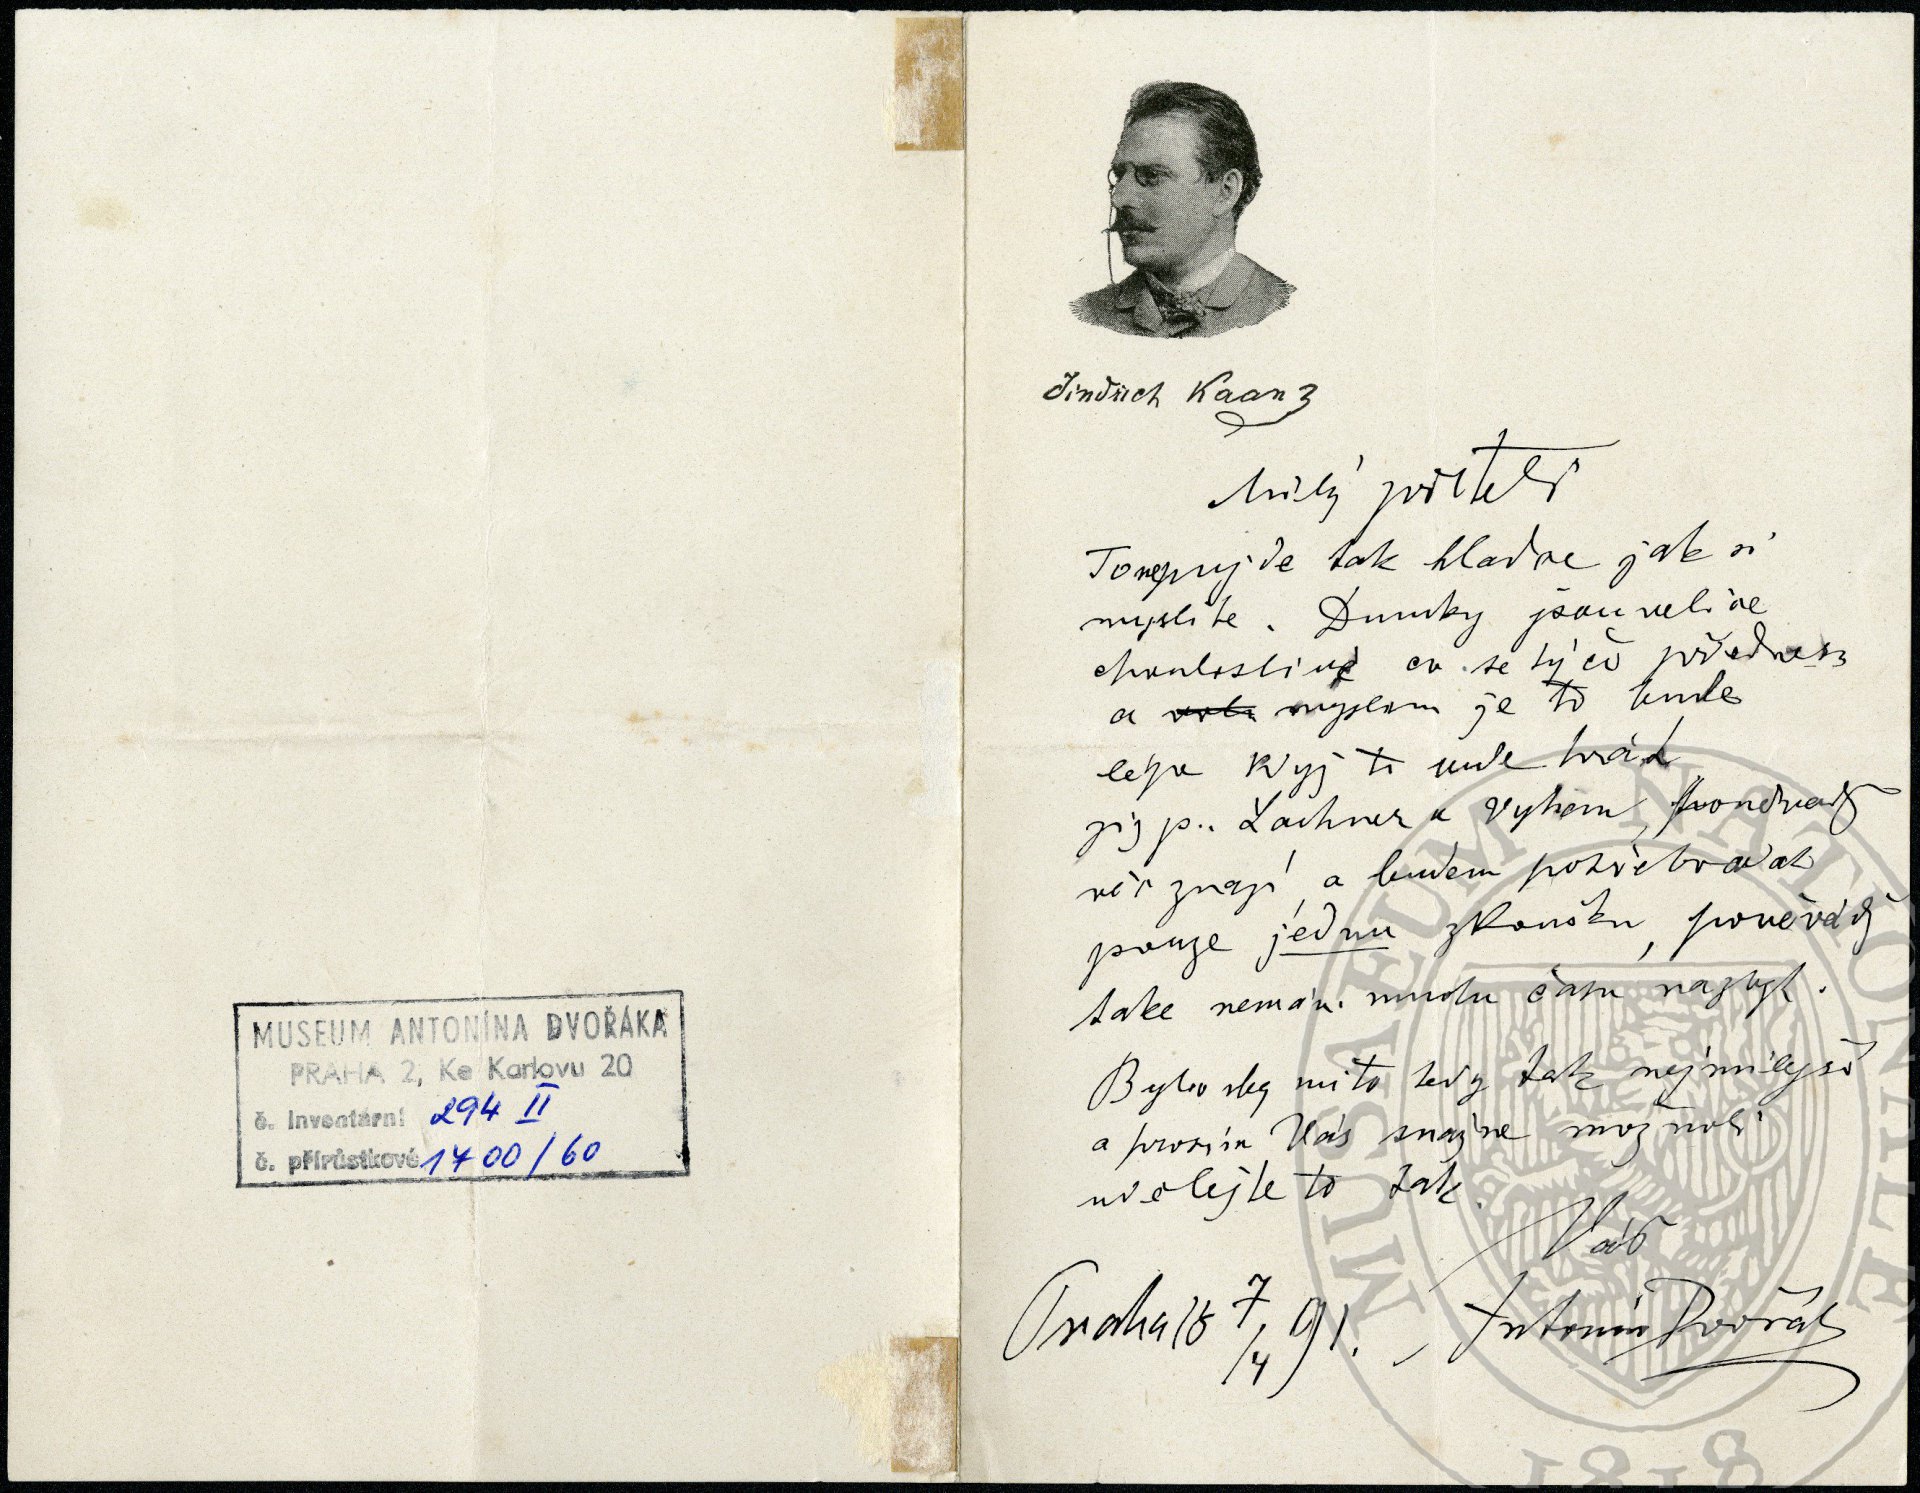 MUSEUM ANTONÍNA DVOŘÁKA
PRAHA 2, Ke Karlovu 20
č. inventární 294 II
č. přírůstkové 1700/60
Jindřich Kaan
Milý příteli
To nepujde tak hladce jak si
myslite. Dumky jsou velice
choulostivé co se týče přednesu
a myslim je to bude
lépe když to bude hrát
p. Lachner a Vyhan, poněvadž
věc znají, a budem potřebovat
pouze jednu zkoušku, poněvádž
take nemám mnoho času nazbyt.
Bylo by mi to tedy tak nejmilejší
a prosím Vás snažne možnoli
udělejte to tak.
Váš
Praha 18 7/4 91. Antonín Dvořák
MUSAEUM NATIONALE
1818